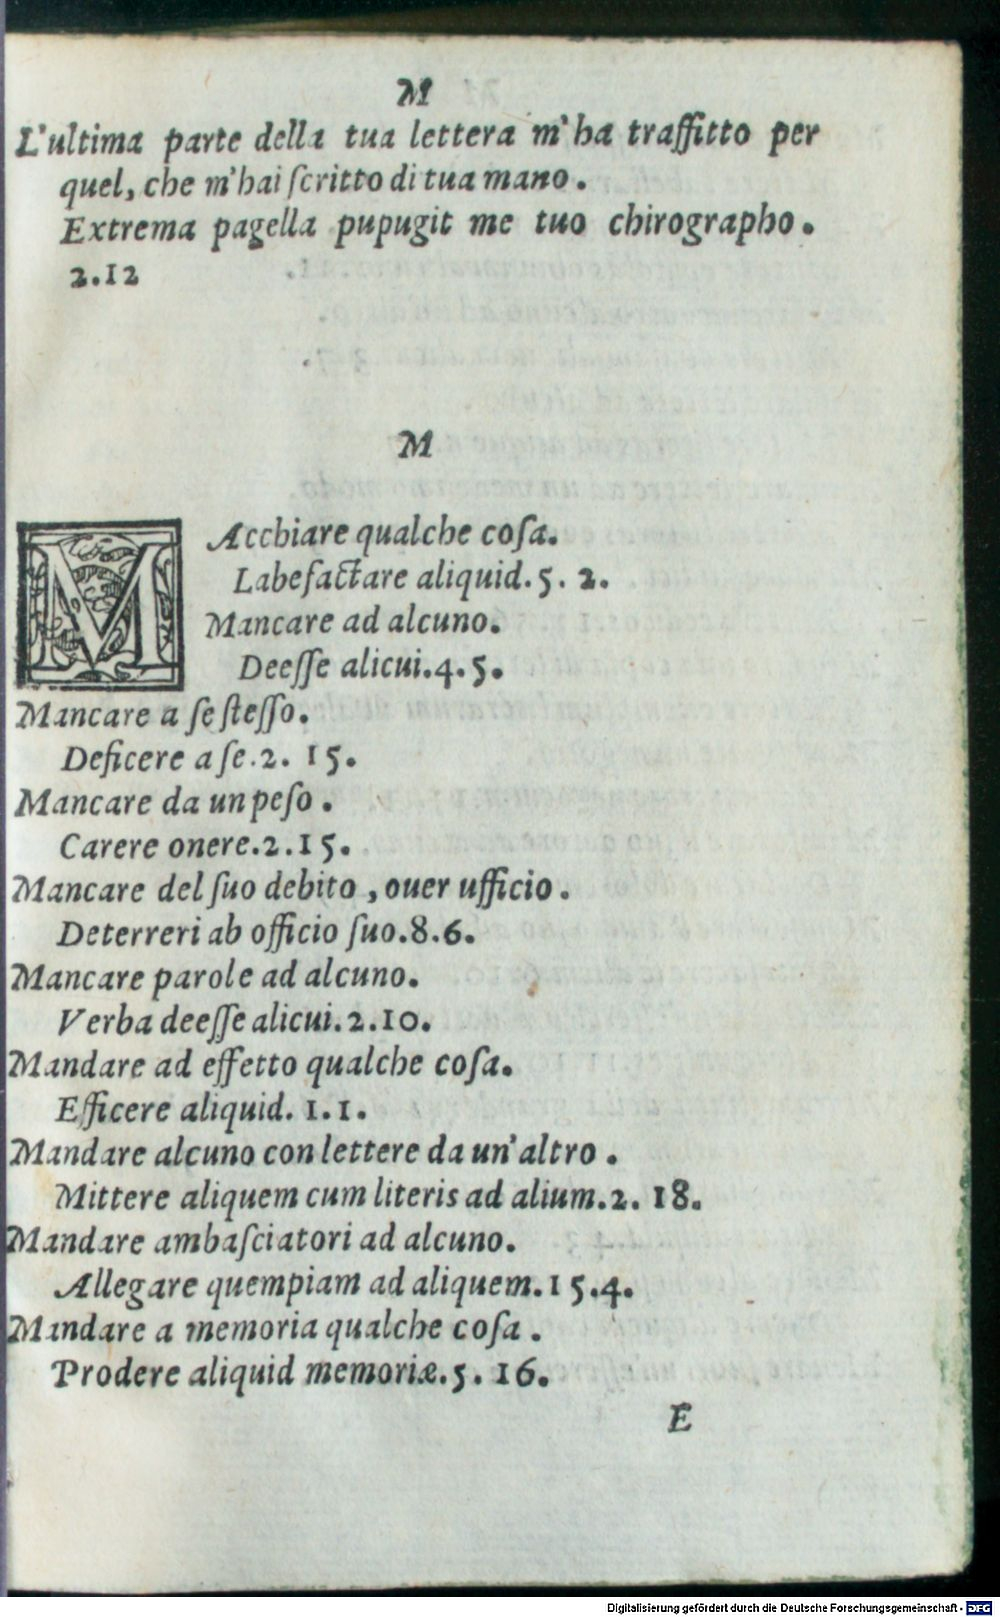 M
L'ultima parte della tua lettera m'ha traffitto per
quel, che m'hai ſcritto di tua mano.
Extrema pagella pupugit me tuo chirographo.
2.12
M
MAcchiare qualche coſa.
Labefactare aliquid. 5. 2.
Mancare ad alcuno.
Deeſſe alicui. 4. 5.
Mancare a ſe ſteſſo.
Deficere a ſe. 2. 15.
Mancare da un peſo.
Carere onere. 2. 15.
Mancare del ſuo debito, ouer ufficio.
Deterreri ab officio ſuo. 8. 6.
Mancare parole ad alcuno.
Verba deeſſe alicui. 2. 10.
Mandare ad effetto qualche coſa.
Efficere aliquid. 1. 1.
Mandare alcuno con lettere da un'altro.
Mittere aliquem cum literis ad alium. 2. 18.
Mandare ambaſciatori ad alcuno.
Allegare quempiam ad aliquem. 15. 4.
Mandare a memoria qualche coſa.
Prodere aliquid memoriæ. 5. 16.
E
Digitalisierung gefördert durch die Deutsche Forschungsgemeinschaft - DFG